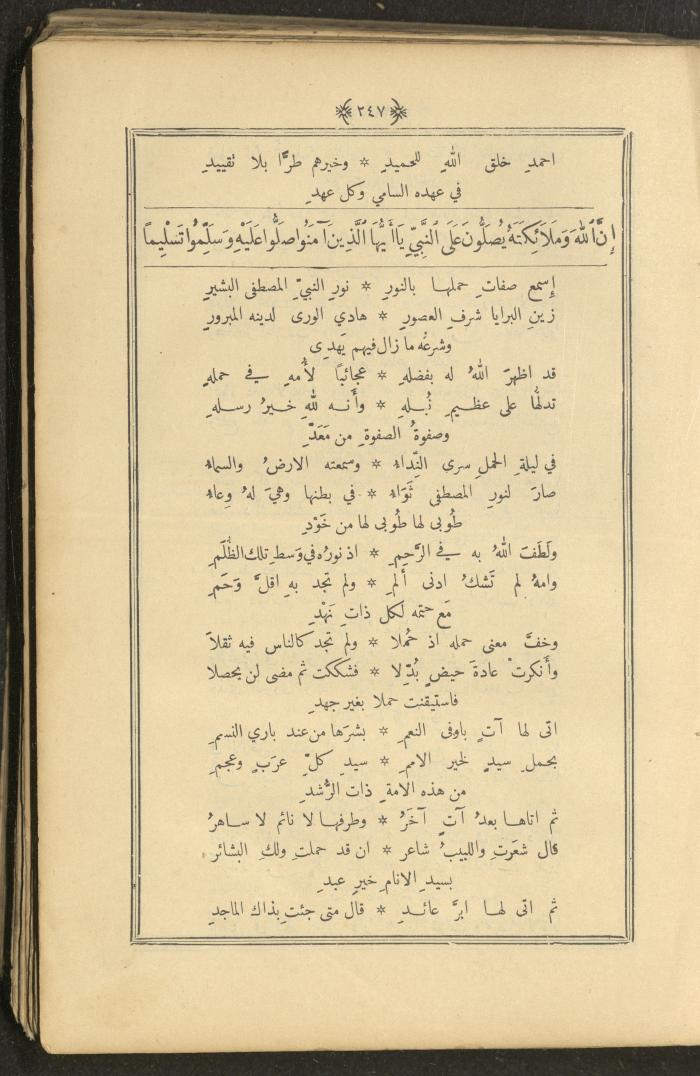 ٢٤٧
احمدِ خلق اللهِ للحميدِ * وخيرهم طرًّا بلا تقييدِ
في عهده السامي وكل عهدِ
إِنَّ ٱللهَ وَمَلَائِكَتَهُ يُصَلُّونَ عَلَى ٱلنَّبِيِّ يَاأَيُّهَا ٱلَّذِينَ آمَنُوا صَلُّوا عَلَيْهِ وَسَلِّمُوا تَسْلِيماً
إِسمع صفاتِ حملها بالنورِ * نورِ النبيّ المصطفى البشيرِ
زينِ البرايا شرفِ العصورِ * هادي الورى لدينه المبرورِ
وشرعُه ما زال فيهم يَهدِى
قد اظهرَ اللهُ له بفضلهِ * عجائباً لأُمهِ في حملهِ
تدلُّها على عظيمِ نُبلهِ * وأَنه للهِ خيرُ رسلهِ
وصفوةُ الصفوةِ من مَعَدِّ
في ليلةِ الحملِ سرى النِّداءُ * وسمعته الارضُ والسماءُ
صارَ لنورِ المصطفى ثَوَاءُ * في بطنها وهيَ لهُ وِعاءُ
طُوبى لها طُوبى لها من خَوْدِ
ولَطَفَ اللهُ به في الرَّحِمِ * اذ نورُه في وَسطِ تلك الظُّلَمِ
وامهُ لم تَشكُ ادنى أَلمِ * ولم تجد به اقلَّ وَحَمِ
مَع حتمه لكل ذاتِ نَهْدِ
وخفَّ معنى حمله اذ حُملا * ولم تجد كالناس فيه ثقلاَ
وأَنكرتْ عادةَ حيضٍ بُدِّلا * فشككت ثم مضى لن يحصلا
فاستيقنت حملا بغير جهدِ
اتى لها آتٍ باوفى النعمِ * بشرَها من عند باري النسمِ
بحملِ سيدٍ لخير الاممِ * سيدِ كلّ عرَبٍ وعجمِ
من هذه الامةِ ذات الرُّشدِ
ثم اتاها بعدُ آتٍ آخَرُ * وطرفها لا نائم لا ساهرُ
قال شعَرتِ واللبيبُ شاعر * ان قد حملتِ ولكِ البشائر
بسيدِ الانام خيرِ عبدِ
ثم اتى لها ابرَّ عائدِ * قال متى جئتِ بذاك الماجدِ